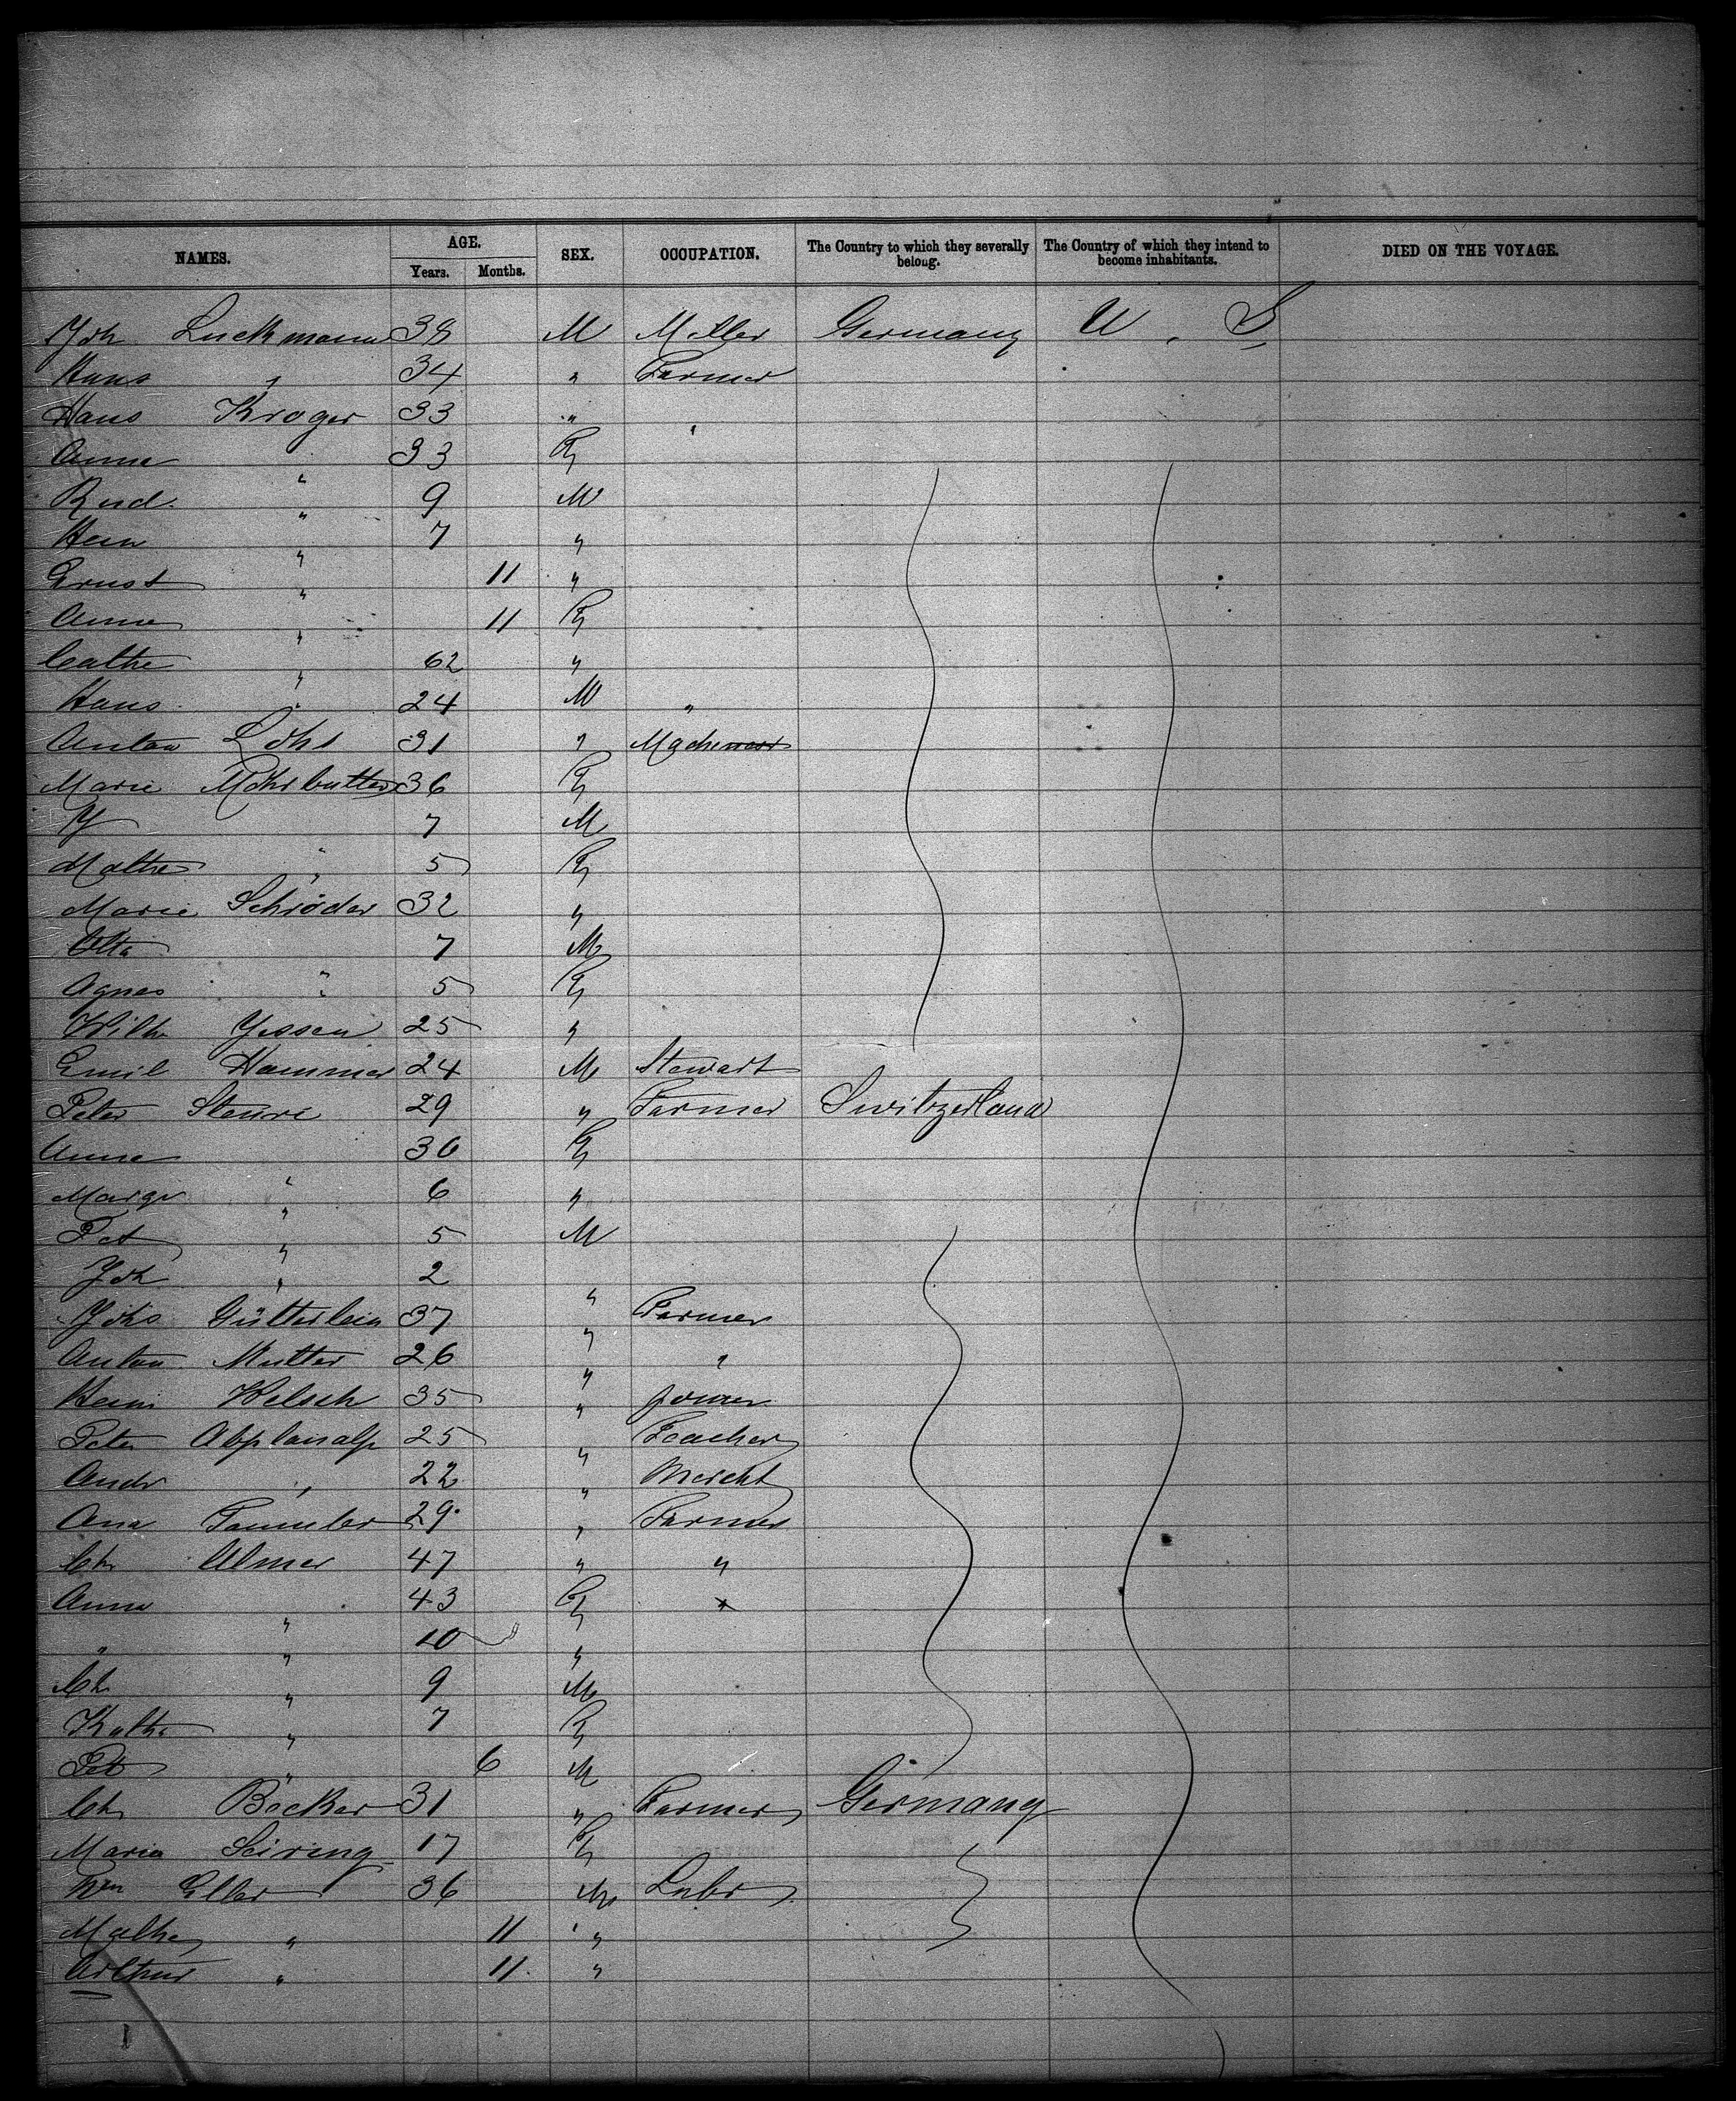 NAMES. AGE. Years. Months. SEX. OCCUPATION. The Country to which they severally belong. The Country of which they intend to become inhabitants. DIED ON THE VOYAGE.
Joh Luckmann 38 M Miller Germany U. S
Hans " 34 " Farmer
Hans Kroger 33 " "
Anna " 33 F
Rud. " 9 M
Hein " 7 "
Ernst " 11 "
Anna " 11 F
Cathe " 62 "
Hans " 24 M "
Anton Löhs 31 "
Marie 36 F
J 7 M
Mathe " 5 F
Marie Schröder 32 "
Otto 7 M
Agnes " 5 F
Wilh Jessen 25 "
Emil Hammer 24 M Stewart
Peter Steuri 29 " Farmer Switzerland
Anna " 30 F
Margr " 6 "
Pet " 5 M
Joh " 2 "
Johs Gütterlein 37 " Farmer
Anton Mutter 26 " "
Heini Welsch 35 "
Peter Abplanalp 25 " Teacher
Andr " 22 " Mercht
29 " Farmer
Ch Ulmer 47 " "
Anna " 43 F
" " 10 "
Ch " 9 M
Kathe " 7 F
Pet " 6 M
Ch Böcker 31 " Farmer Germany
Maria Seiring 17 F
Wm Eller 36 M Labr
Mathe " 11 "
Arthur " 11 "